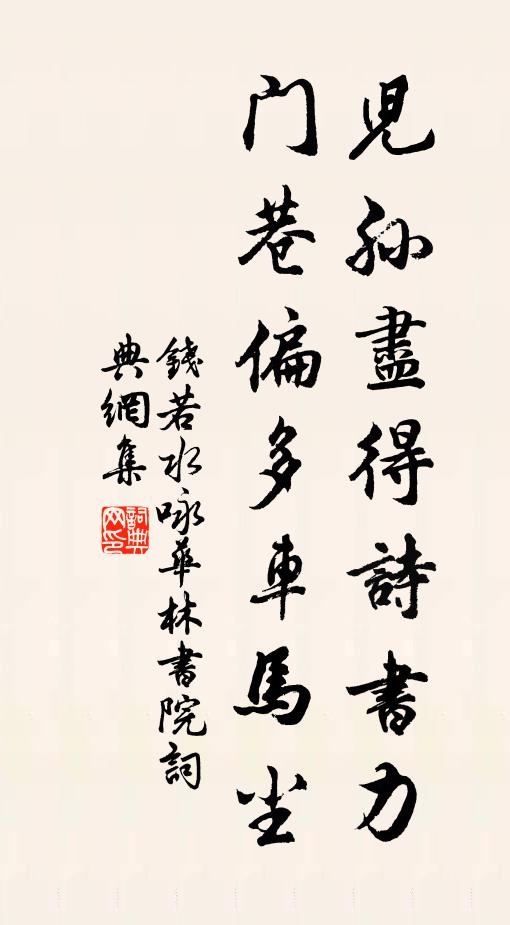 兒孙盡得詩書力
門巷偏多車馬尘
錢若水咏華林書院詞
典網集
詞典
网印